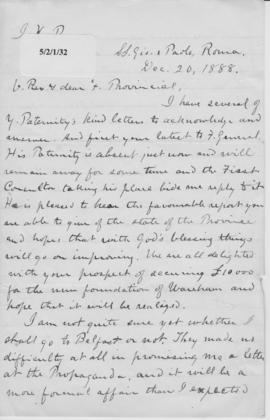 J. X. P.
5/2/1/32
SS. Gio. e Paolo, Roma.
Dec. 20, 1888.
V. Rev. & dear F. Provincial,
I have several of
Y. Paternity's kind letters to acknowledge and
answer. And first your latest to F. General.
His Paternity is absent just now and will
remain away for some time and the First
Consultor taking his place bids me reply to it.
He is pleased to hear the favourable report you
are able to give of the state of the Province
and hopes that with God's blessing things
will go on improving. We are all delighted
with your prospect of securing £10000
for the new foundation of Wareham and
hope that it will be realized.
I am not quite sure yet whether I
shall go to Belfast or not. They made no
difficulty at all in promising me a letter
at the Propaganda, and it will be a
more formal affair than I expected